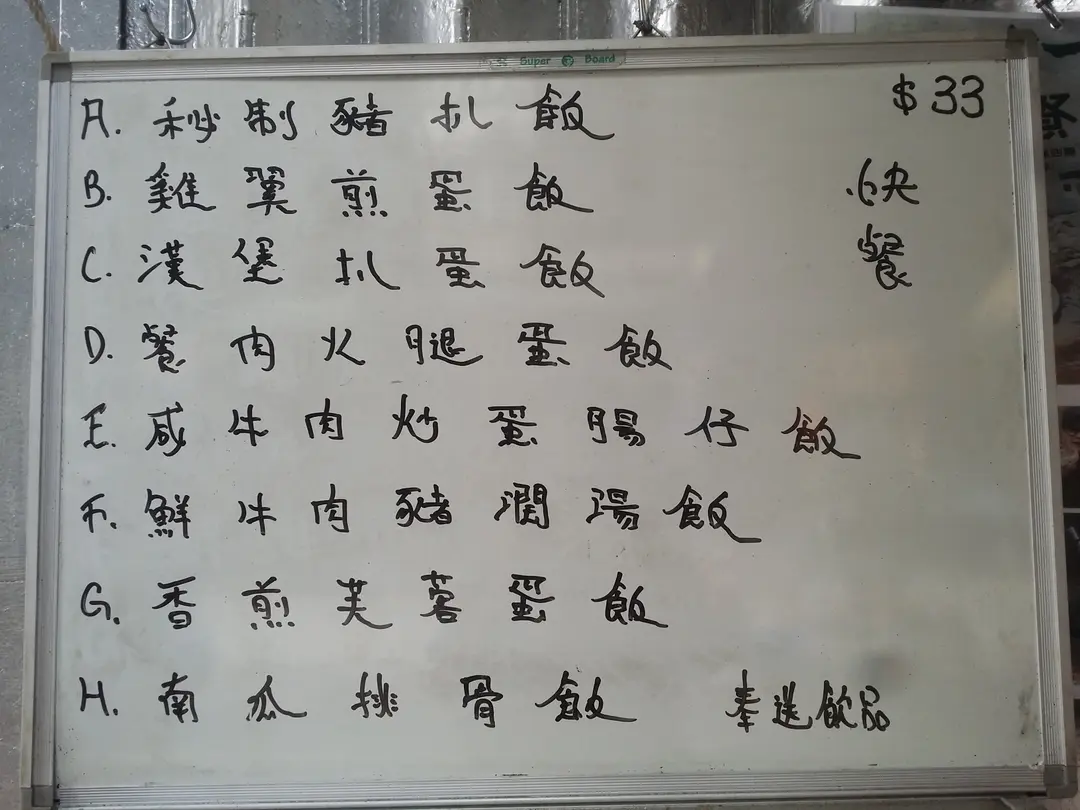 Super Board
A. 秘制豬扒飯
$33
B. 雞翼煎蛋飯
快
C. 漢堡扒蛋飯
餐
D. 餐肉火腿蛋飯
E. 咸牛肉炒蛋腸仔飯
F. 鮮牛肉豬潤湯飯
G. 香煎芙蓉蛋飯
H. 南瓜排骨飯
奉送飲品